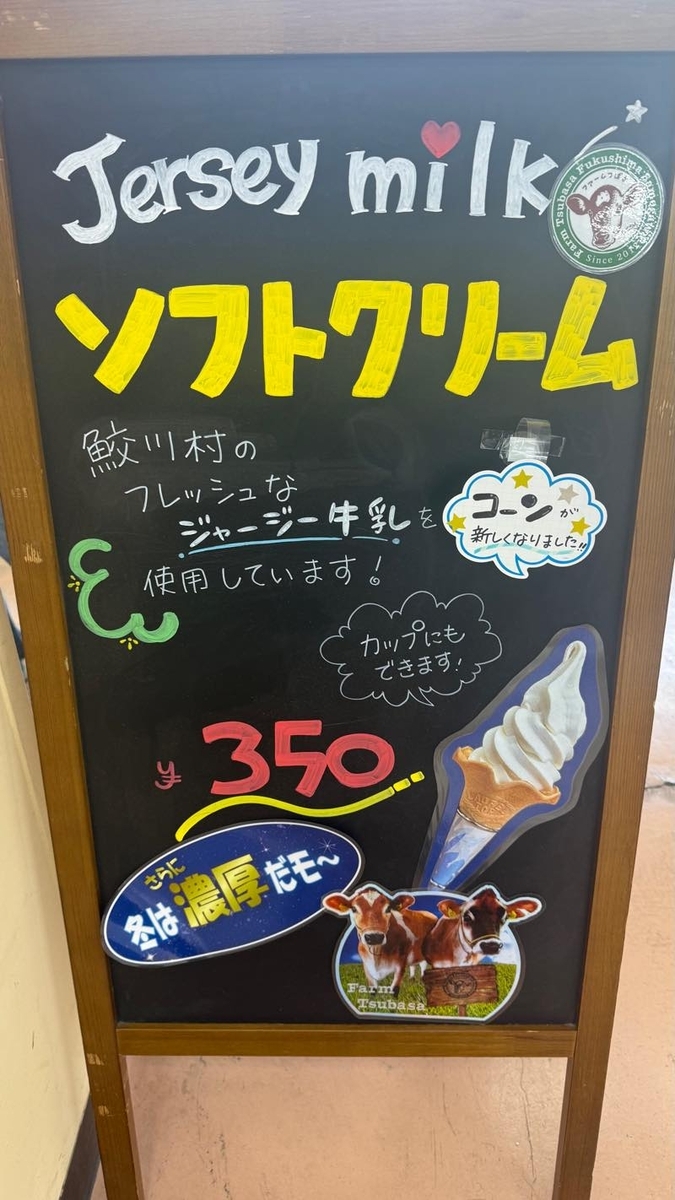 Jersey milk
Farm Tsubasa Fukushima Samegawa
ファームつばさ
Since 201
ソフトクリーム
鮫川村の
フレッシュな
ジャージー牛乳を
使用しています!
コーンが
新しくなりました!!
カップにも
できます!
¥350
さらに
冬は濃厚だモ〜
Farm
Tsubasa